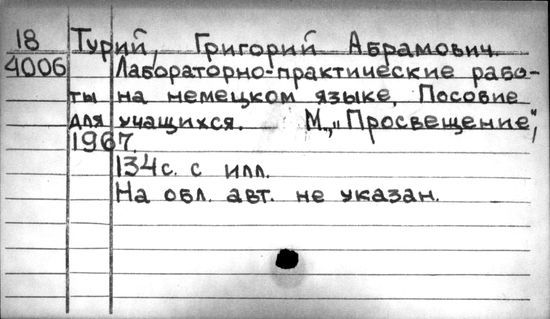 18 Турий, Григорий Абрамович.
4006 Лабораторно-практические рабо-
ты на немецком языке. Пособие
для учащихся. М., „Просвещение",
1967.
134 с. с илл.
На обл. авт. не указан.